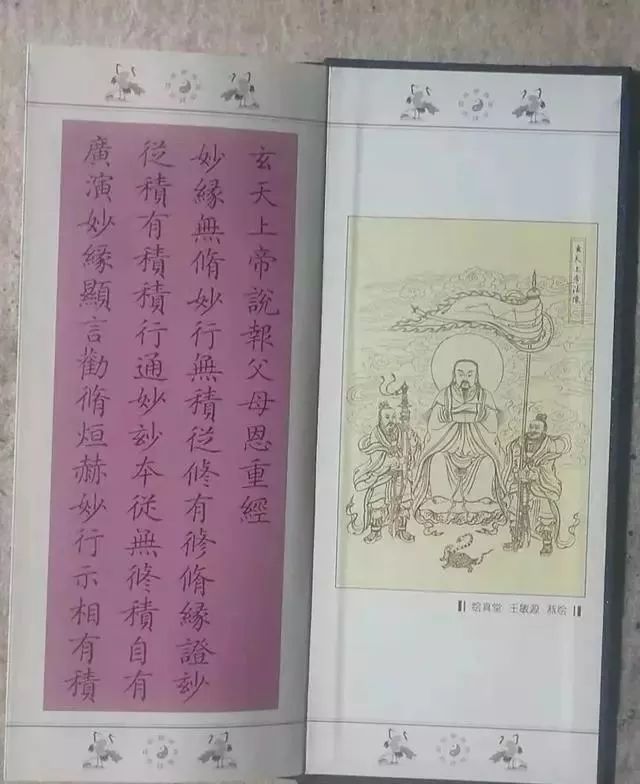 玄天上帝說報父母恩重經
妙緣無脩妙行無積從修有修脩緣證玅
從積有積積行通妙玅本從無修積自有
廣演妙緣顯言勸脩烜赫妙行示相有積
玄天上帝法像
绘真堂 王敏源 绘